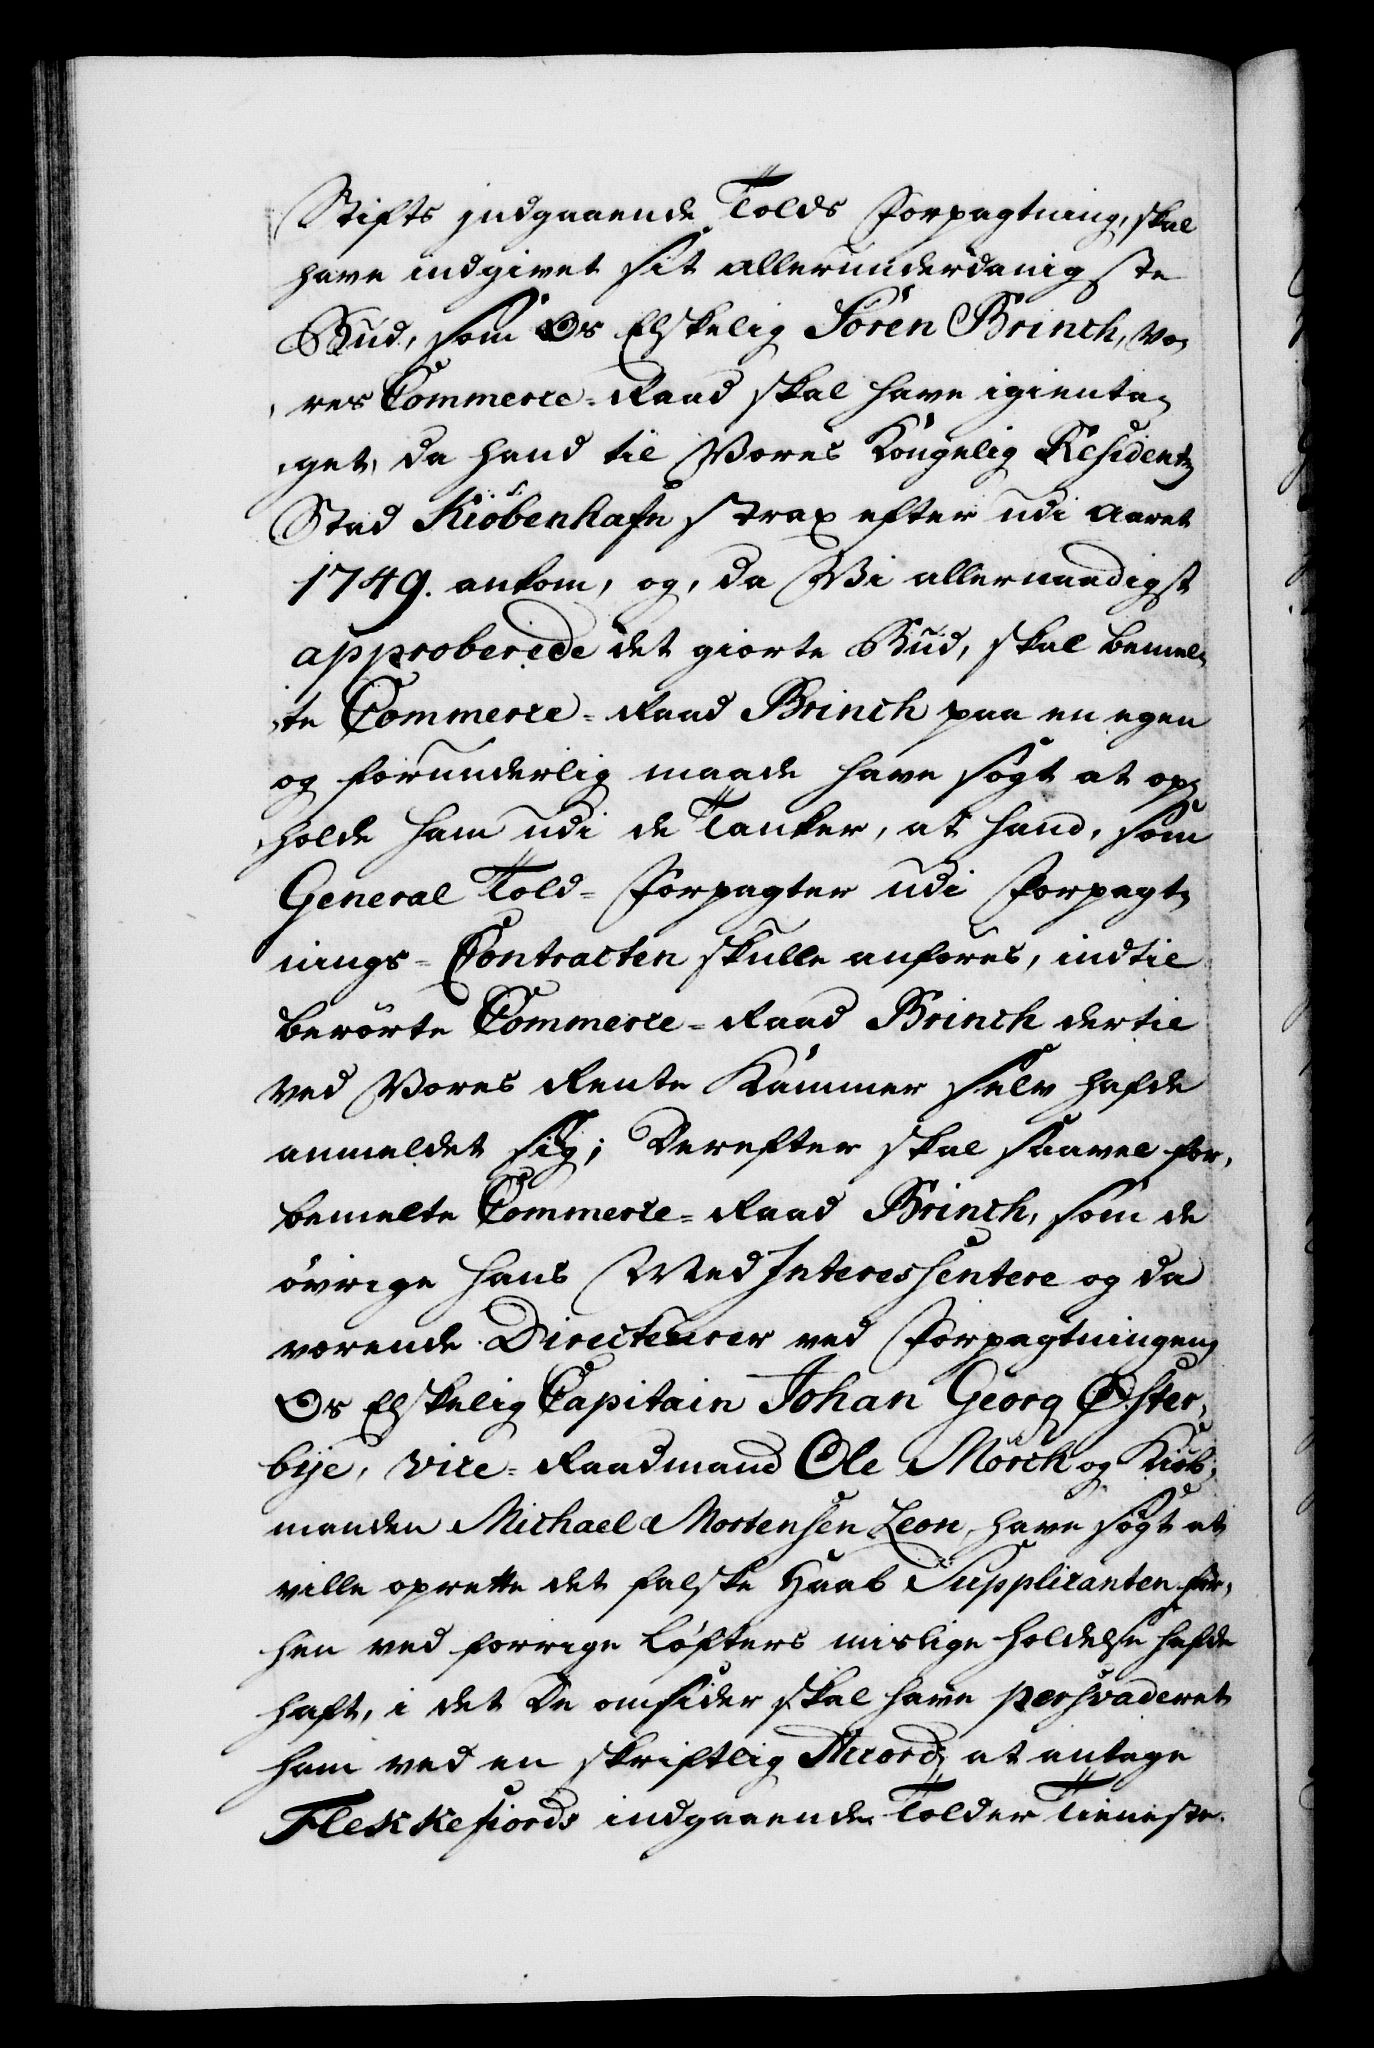 Stifts indgaaende Tolds Forpagtning, skal
have indgivet sit allerunderdanigste
Bud, som Os Elskelig Sören Brinch, Vo-
res Commerce-Raad skal have igienta-
get, da hand til Vores Kongelig Residentz
Stad Kiöbenhafn strax efter udi Aaret
1749. ankom, og, da Vi allernaadigst
approberede det giorte Bud, skal bemel-
te Commerce-Raad Brinch paa en egen
og forunderlig maade have søgt at op-
holde ham udi de Tanker, at hand, som
General Told-Forpagter udi Forpagt-
nings-Contracten skulle anføres, indtil
berørte Commerce-Raad Brinch dertil
ved Vores Rente Kammer selv hafde
anmeldet sig; Derefter skal saavel for-
bemelte Commerce-Raad Brinch, som de
övrige hans Med Interessentere og da
værende Directeurer ved Forpagtningen
Os Elskelig Capitain Johan Georg Øster-
bye, Vice-Raadmand Ole Mörch og Kiöb-
manden Michael Mortensen Leon, have søgt at
ville oprette det falske Haab Supplicanten for-
hen ved forrige Løfters mislige Holdelse hafde
haft, i det De omsider skal have persvaderet
ham ved en skriftlig Accord, at antage
Flekkefiords indgaaende Tolder Tieneste.